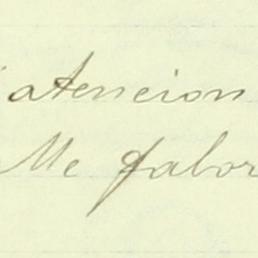 atencion
Me fabor